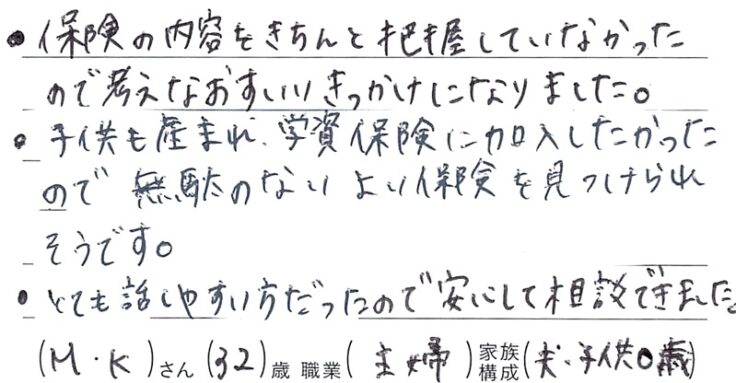 ●保険の内容をきちんと把握していなかった
ので考えなおすいいきっかけになりました。
●子供も産まれ、学資保険に加入したかった
ので無駄のないよい保険を見つけられ
そうです。
●とても話しやすい方だったので安心して相談できました。
(M・K)さん(32)歳 職業(主婦)家族構成(夫・子供0歳)